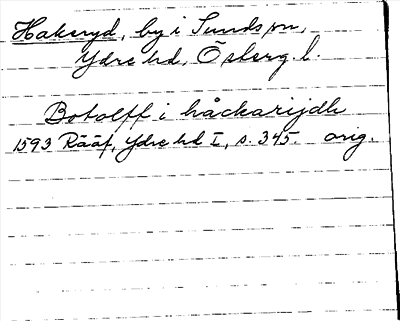 Hakeryd, by i Sunds sn,
Ydre hd, Österg. l.
Botolff i håckarijdh
1593 Rääf, Ydre hd I, s. 345. orig.